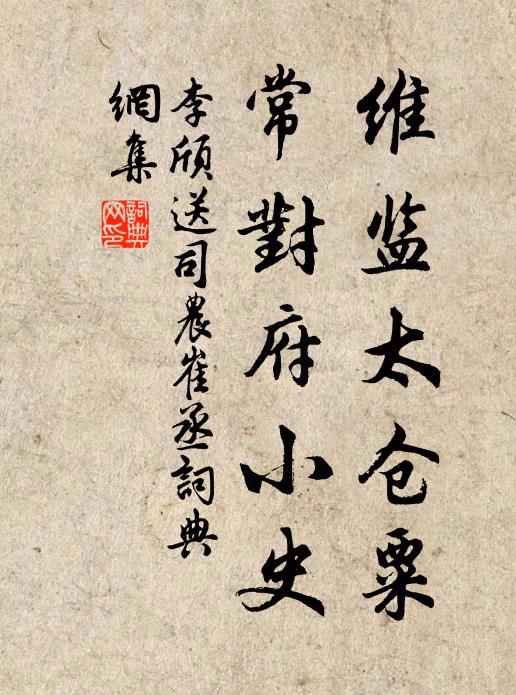 维监太仓粟
常對府小史
李頎送司農崔丞詞典
網集
詞典
网印